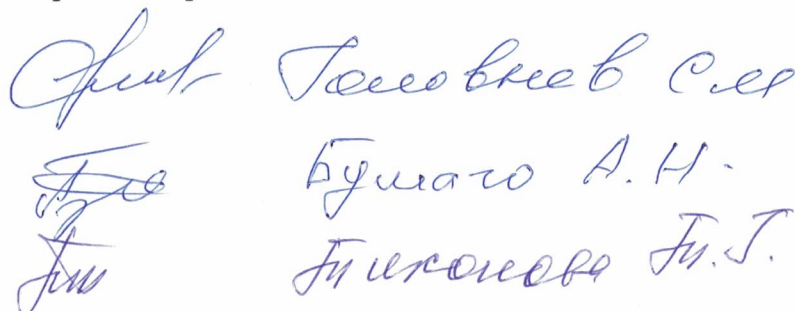 Головнев С М
Бушаго А. Н.
Тихонова Т. Г.